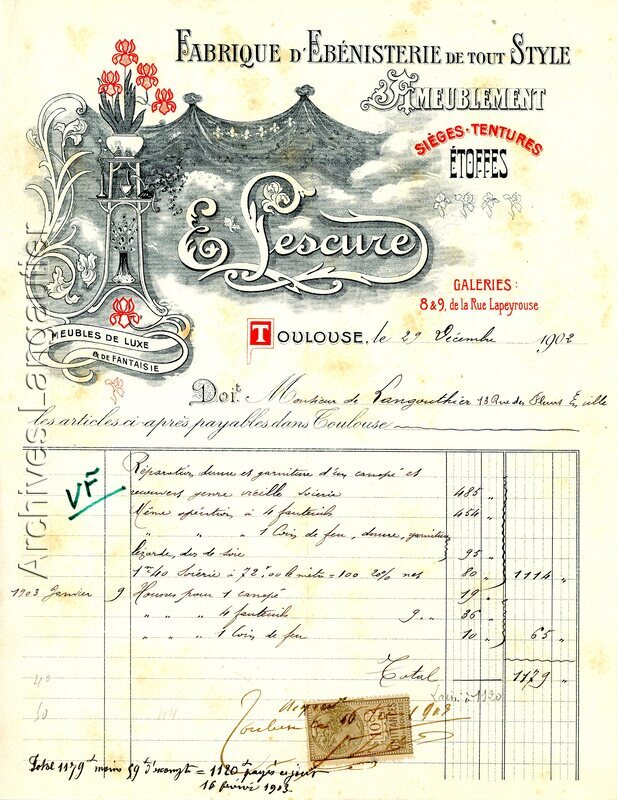 FABRIQUE D'EBÉNISTERIE DE TOUT STYLE
AMEUBLEMENT
SIÈGES-TENTURES
ÉTOFFES
E Lescure
GALERIES :
8 & 9, de la Rue Lapeyrouse
MEUBLES DE LUXE
& DE FANTAISIE
TOULOUSE, le 29 Décembre 1902
Doit Monsieur de Langouthier 13 Rue des Fleurs E. ville
les articles ci-après payables dans Toulouse
Archives Largautier
VF
Réparation dorure et garniture d'un canapé et
recouvers genre vieille soierie 485 "
Même opération à 4 fauteuils 454 "
" " " 1 Coin de feu, dorure, garniture
lezarde, dos de soie 95 "
1m40 Soierie à 72f,00 le mètre = 100 20% net 80 " 1114 "
1903 Janvier 9 Housses pour 1 canapé 19 "
" " " 4 fauteuils 9 " 36 "
" " " 1 Coin de feu 10 " 65 "
Total 1179 "
à 1120
1903
10c
Total 1179f moins 59f d'escompte = 1120f payés ce jour
16 février 1903.